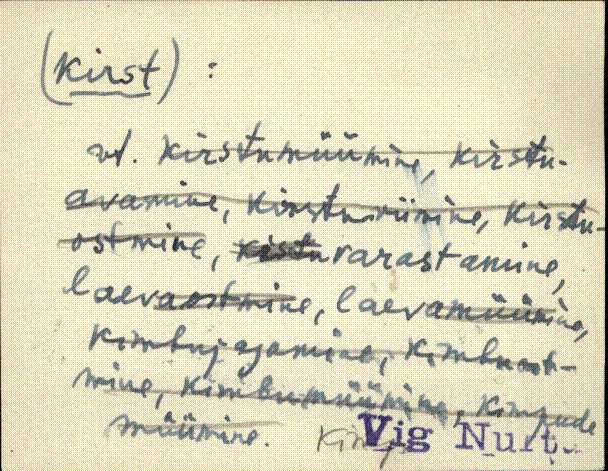 (Kirst) :
vt. Kirstumüümine, Kirstu-
avamine, Kirstuviimine, Kirstu-
ostmine, kistuvarastamine,
laevaostmine, laevamüümine,
Kimbujagamine, Kimbuost-
mine, Kimbumüümine, Kimpude
müümine.
Vig Nurt.